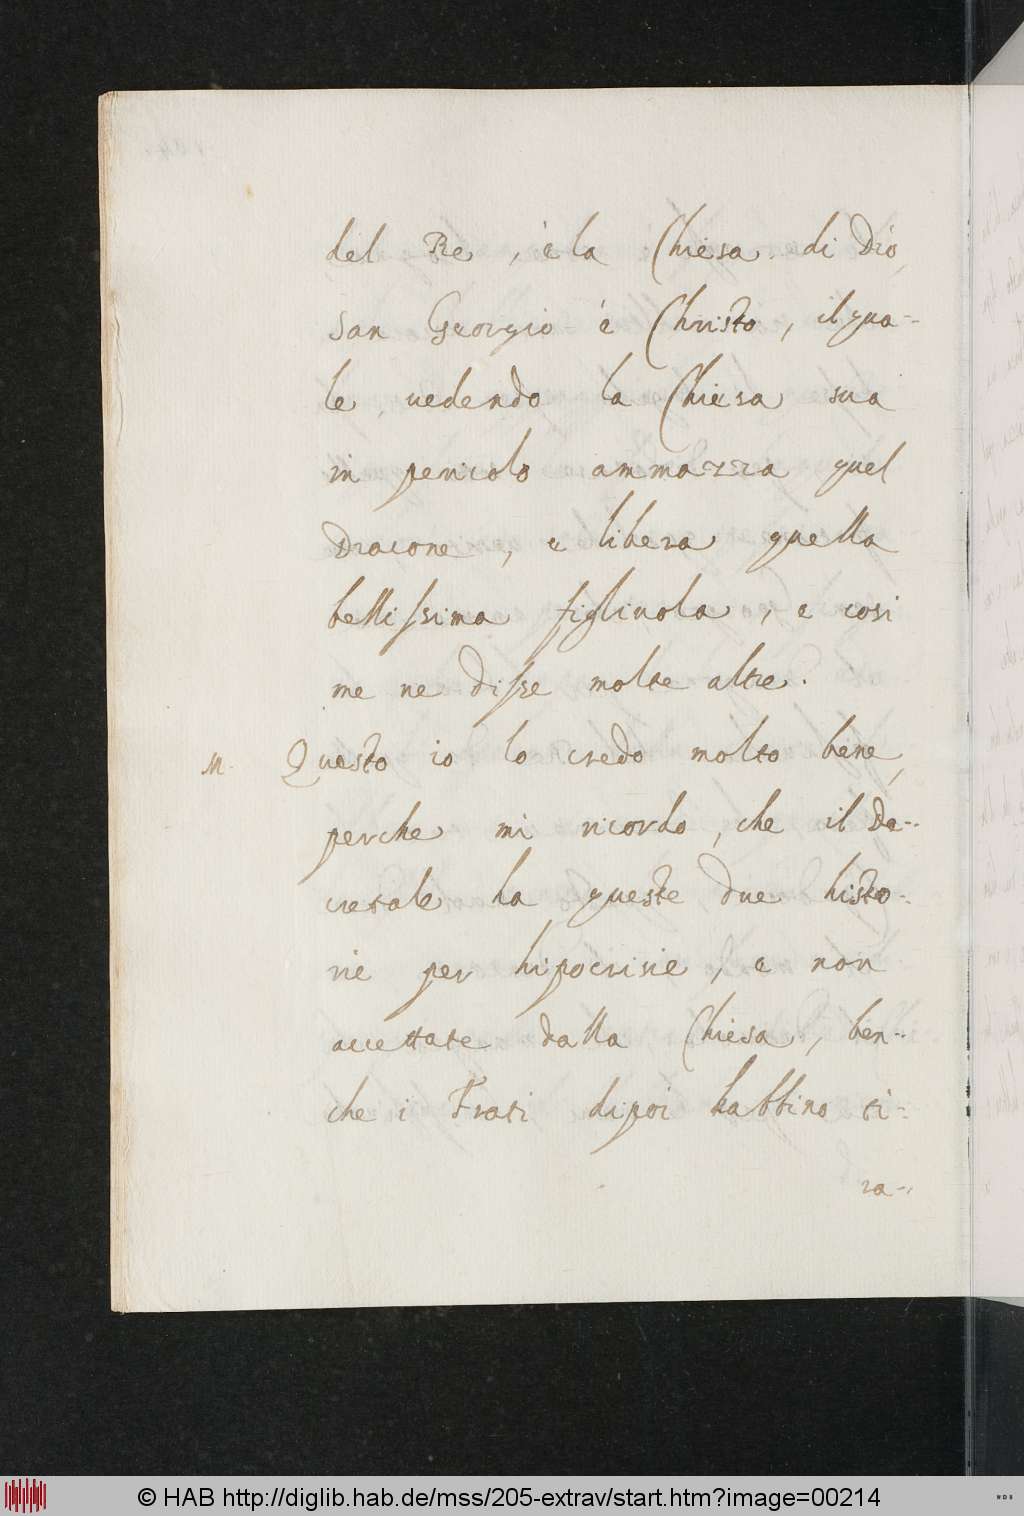 del Re, è la Chiesa di Dio,
San Georgio è Christo, il qua-
le vedendo la Chiesa sua
in pericolo ammazza quel
Dracone, e libera quella
bellissima figliuola, e cosi
me ne disse molte altre.
M. Questo io lo credo molto bene,
perche mi ricordo, che il De-
cretale ha queste due histo-
rie per hipocrisie, e non
accettate dalla Chiesa, ben-
che i Frati dipoi habbino ti-
ra-
© HAB http://diglib.hab.de/mss/205-extrav/start.htm?image=00214